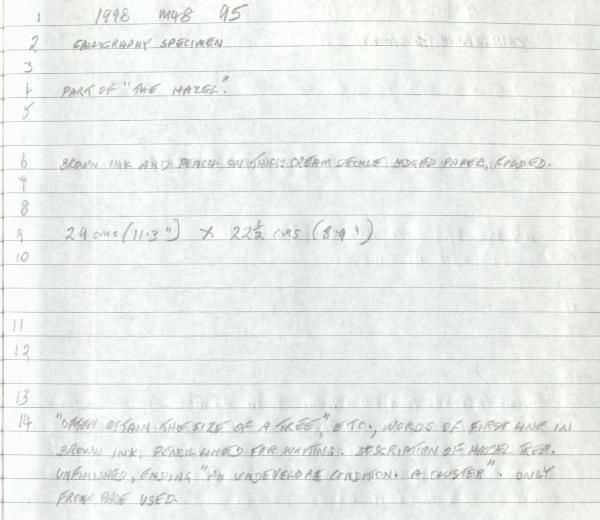 1 1998 M48 95
2 CALLIGRAPHY SPECIMEN
3
4 PART OF "THE HAZEL".
5
6 BROWN INK AND PENCIL ON THICK CREAM DECKLE EDGED PAPER, FOLDED.
7
8
9 29 cms (11.3") X 22½ cms (8.9")
10
11
12
13
14 "OFTEN ATTAIN THE SIZE OF A TREE," ETC., WORDS OF FIRST LINE IN
BROWN INK. PENCIL LINED FOR WRITING. DESCRIPTION OF HAZEL TREE.
UNFINISHED, ENDING "AN UNDEVELOPE CONDITION. A CLUSTER". ONLY
FRONT PAGE USED.